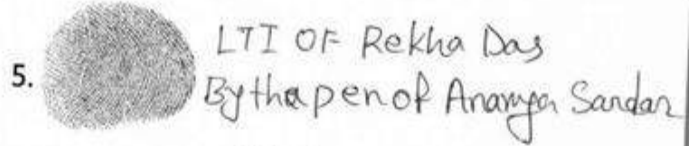 5. LTI OF Rekha Das
By the pen of Ananya Sardar